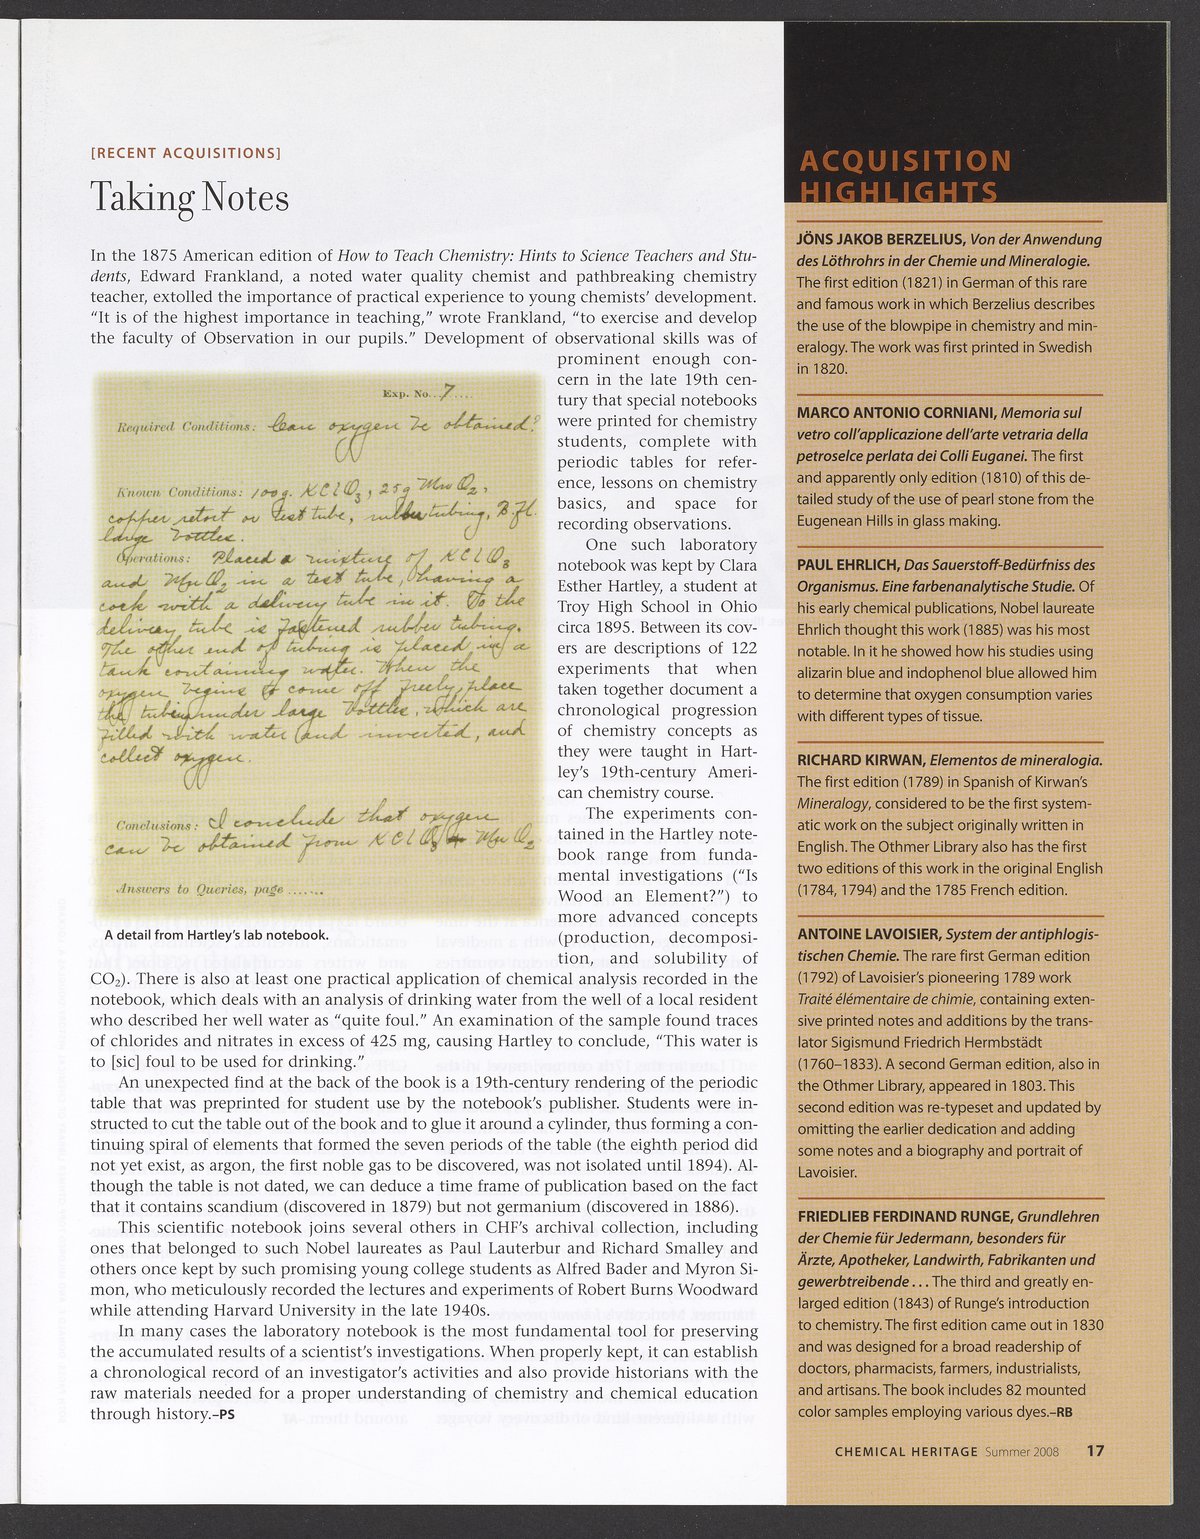 [RECENT ACQUISITIONS]
Taking Notes
In the 1875 American edition of How to Teach Chemistry: Hints to Science Teachers and Stu-
dents, Edward Frankland, a noted water quality chemist and pathbreaking chemistry
teacher, extolled the importance of practical experience to young chemists’ development.
“It is of the highest importance in teaching,” wrote Frankland, “to exercise and develop
the faculty of Observation in our pupils.” Development of observational skills was of
prominent enough con-
cern in the late 19th cen-
tury that special notebooks
were printed for chemistry
students, complete with
periodic tables for refer-
ence, lessons on chemistry
basics, and space for
recording observations.
One such laboratory
notebook was kept by Clara
Esther Hartley, a student at
Troy High School in Ohio
circa 1895. Between its cov-
ers are descriptions of 122
experiments that when
taken together document a
chronological progression
of chemistry concepts as
they were taught in Hart-
ley’s 19th-century Ameri-
can chemistry course.
The experiments con-
tained in the Hartley note-
book range from funda-
mental investigations (“Is
Wood an Element?”) to
more advanced concepts
(production, decomposi-
tion, and solubility of
CO₂). There is also at least one practical application of chemical analysis recorded in the
notebook, which deals with an analysis of drinking water from the well of a local resident
who described her well water as “quite foul.” An examination of the sample found traces
of chlorides and nitrates in excess of 425 mg, causing Hartley to conclude, “This water is
to [sic] foul to be used for drinking.”
An unexpected find at the back of the book is a 19th-century rendering of the periodic
table that was preprinted for student use by the notebook’s publisher. Students were in-
structed to cut the table out of the book and to glue it around a cylinder, thus forming a con-
tinuing spiral of elements that formed the seven periods of the table (the eighth period did
not yet exist, as argon, the first noble gas to be discovered, was not isolated until 1894). Al-
though the table is not dated, we can deduce a time frame of publication based on the fact
that it contains scandium (discovered in 1879) but not germanium (discovered in 1886).
This scientific notebook joins several others in CHF’s archival collection, including
ones that belonged to such Nobel laureates as Paul Lauterbur and Richard Smalley and
others once kept by such promising young college students as Alfred Bader and Myron Si-
mon, who meticulously recorded the lectures and experiments of Robert Burns Woodward
while attending Harvard University in the late 1940s.
In many cases the laboratory notebook is the most fundamental tool for preserving
the accumulated results of a scientist’s investigations. When properly kept, it can establish
a chronological record of an investigator’s activities and also provide historians with the
raw materials needed for a proper understanding of chemistry and chemical education
through history.–PS
Exp. No...7....
Required Conditions: Can oxygen be obtained?
Known Conditions: 100g. KClO₃, 25g MnO₂,
copper retort or test tube, rubber tubing, B. Fl.
large bottles.
Operations: Placed a mixture of KClO₃
and MnO₂ in a test tube, having a
cork with a delivery tube in it. To the
delivery tube is fastened rubber tubing.
The other end of tubing is placed in a
tank containing water. When the
oxygen begins to come off freely, place
the tubing under large bottles, which are
filled with water and inverted, and
collect oxygen.
Conclusions: I conclude that oxygen
can be obtained from KClO₃ + MnO₂
Answers to Queries, page .......
A detail from Hartley’s lab notebook.
ACQUISITION
HIGHLIGHTS
JÖNS JAKOB BERZELIUS, Von der Anwendung
des Löthrohrs in der Chemie und Mineralogie.
The first edition (1821) in German of this rare
and famous work in which Berzelius describes
the use of the blowpipe in chemistry and min-
eralogy. The work was first printed in Swedish
in 1820.
MARCO ANTONIO CORNIANI, Memoria sul
vetro coll’applicazione dell’arte vetraria della
petroselce perlata dei Colli Euganei. The first
and apparently only edition (1810) of this de-
tailed study of the use of pearl stone from the
Eugenean Hills in glass making.
PAUL EHRLICH, Das Sauerstoff-Bedürfniss des
Organismus. Eine farbenanalytische Studie. Of
his early chemical publications, Nobel laureate
Ehrlich thought this work (1885) was his most
notable. In it he showed how his studies using
alizarin blue and indophenol blue allowed him
to determine that oxygen consumption varies
with different types of tissue.
RICHARD KIRWAN, Elementos de mineralogia.
The first edition (1789) in Spanish of Kirwan’s
Mineralogy, considered to be the first system-
atic work on the subject originally written in
English. The Othmer Library also has the first
two editions of this work in the original English
(1784, 1794) and the 1785 French edition.
ANTOINE LAVOISIER, System der antiphlogis-
tischen Chemie. The rare first German edition
(1792) of Lavoisier’s pioneering 1789 work
Traité élémentaire de chimie, containing exten-
sive printed notes and additions by the trans-
lator Sigismund Friedrich Hermbstädt
(1760–1833). A second German edition, also in
the Othmer Library, appeared in 1803. This
second edition was re-typeset and updated by
omitting the earlier dedication and adding
some notes and a biography and portrait of
Lavoisier.
FRIEDLIEB FERDINAND RUNGE, Grundlehren
der Chemie für Jedermann, besonders für
Ärzte, Apotheker, Landwirth, Fabrikanten und
gewerbtreibende . . . The third and greatly en-
larged edition (1843) of Runge’s introduction
to chemistry. The first edition came out in 1830
and was designed for a broad readership of
doctors, pharmacists, farmers, industrialists,
and artisans. The book includes 82 mounted
color samples employing various dyes.–RB
CHEMICAL HERITAGE Summer 2008 17